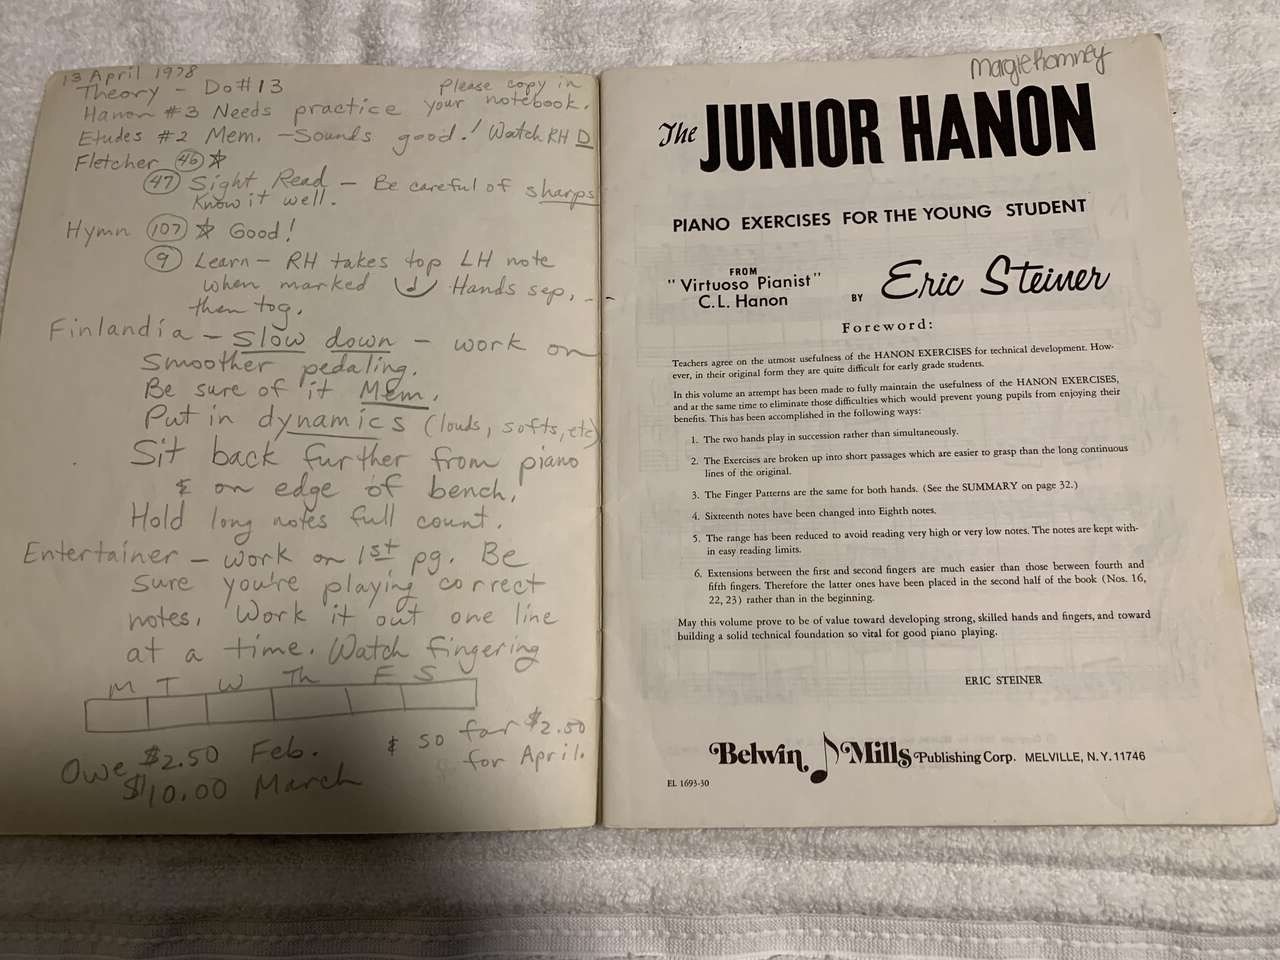 13 April 1978
Theory - Do #13 Please copy in
Hanon #3 Needs practice your notebook.
Etudes #2 Mem. - Sounds good! Watch RH D
Fletcher 46 ☆
47 Sight Read - Be careful of sharps
Know it well.
Hymn 107 ☆ Good!
9 Learn - RH takes top LH note
when marked Hands sep,
then tog.
Finlandia - Slow down - work on
smoother pedaling.
Be sure of it Mem.
Put in dynamics (louds, softs, etc)
Sit back further from piano
& on edge of bench.
Hold long notes full count.
Entertainer - work on 1st pg. Be
sure you're playing correct
notes. Work it out one line
at a time. Watch fingering
M T W Th F S
Owe $2.50 Feb. & so far $2.50
$10.00 March for April.
Margie Romney
The JUNIOR HANON
PIANO EXERCISES FOR THE YOUNG STUDENT
FROM
"Virtuoso Pianist"
C.L. Hanon
BY Eric Steiner
Foreword:
Teachers agree on the utmost usefulness of the HANON EXERCISES for technical development. How-
ever, in their original form they are quite difficult for early grade students.
In this volume an attempt has been made to fully maintain the usefulness of the HANON EXERCISES,
and at the same time to eliminate those difficulties which would prevent young pupils from enjoying their
benefits. This has been accomplished in the following ways:
1. The two hands play in succession rather than simultaneously.
2. The Exercises are broken up into short passages which are easier to grasp than the long continuous
lines of the original.
3. The Finger Patterns are the same for both hands. (See the SUMMARY on page 32.)
4. Sixteenth notes have been changed into Eighth notes.
5. The range has been reduced to avoid reading very high or very low notes. The notes are kept with-
in easy reading limits.
6. Extensions between the first and second fingers are much easier than those between fourth and
fifth fingers. Therefore the latter ones have been placed in the second half of the book (Nos. 16,
22, 23) rather than in the beginning.
May this volume prove to be of value toward developing strong, skilled hands and fingers, and toward
building a solid technical foundation so vital for good piano playing.
ERIC STEINER
Belwin Mills Publishing Corp. MELVILLE, N.Y. 11746
EL 1693-30